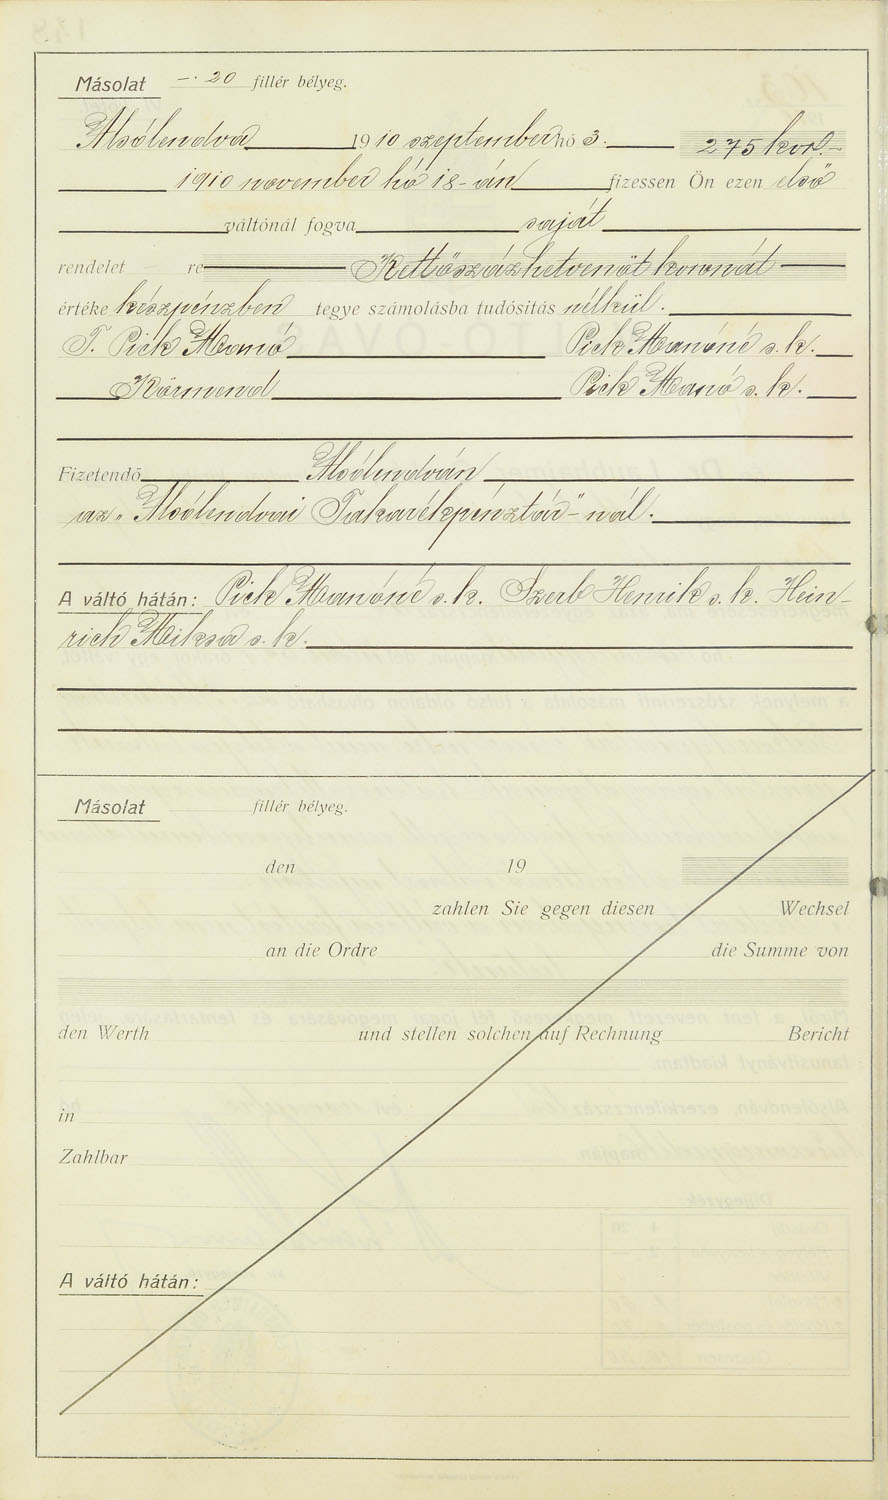 Másolat —.20 fillér bélyeg.
Alsólendva 1910 szeptember hó 3. 275 kor.—
1910 november hó 18-án fizessen Ön ezen első
váltónál fogva saját
rendelet re Kettőszázhetvenöt koronát
értéke készpénzben tegye számolásba tudósitás nélkül.
T. Pick Manó Pick Manóné s. k.
Körmend Pick Manó s. k.
Fizetendő Alsólendván
az „Alsólendvai Takarékpénztár"-nál.
A váltó hátán: Pick Manóné s. k. Szerb Henrik s. k. Hein-
rich Miksa s. k.
Másolat fillér bélyeg.
den 19
zahlen Sie gegen diesen Wechsel
an die Ordre die Summe von
den Werth und stellen solchen auf Rechnung Bericht
in
Zahlbar
A váltó hátán: